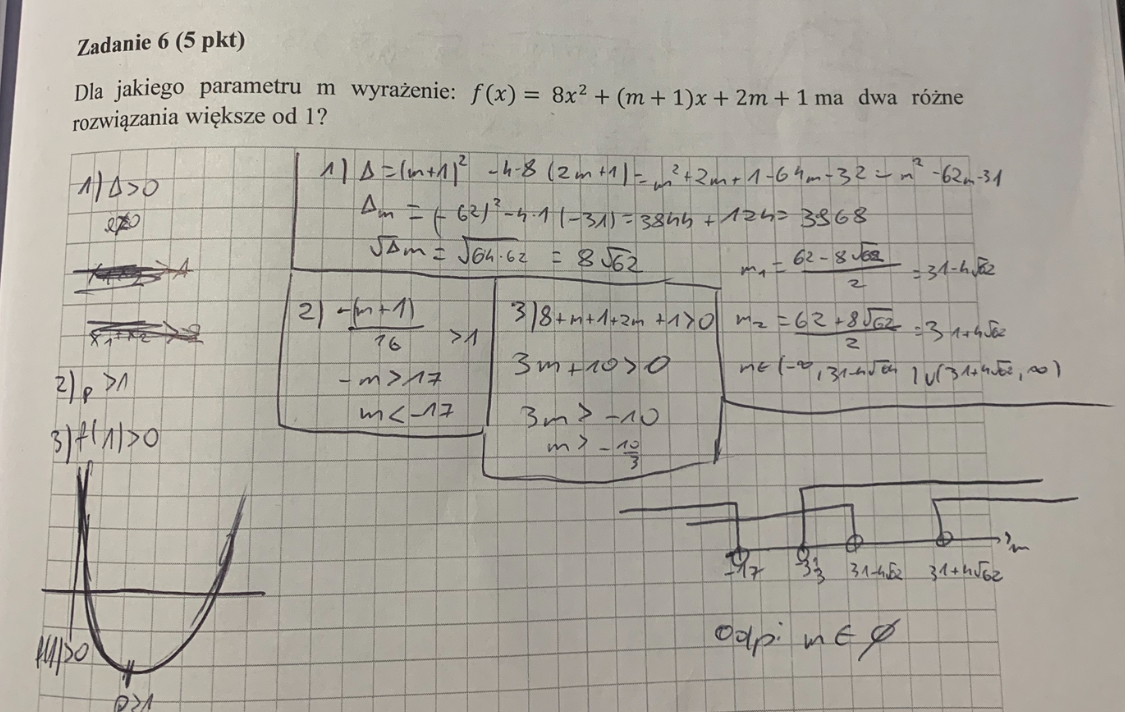 Zadanie 6 (5 pkt)
Dla jakiego parametru m wyrażenie: f(x) = 8x² + (m + 1)x + 2m + 1 ma dwa różne
rozwiązania większe od 1?
1) Δ>0
2) p >1
3) f(1)>0
f(1)>0
p>1
1) Δ = (m+1)² -4·8 (2m+1) = m²+2m+1-64m-32 = m² -62m-31
Δm = (-62)²-4·1(-31) = 3844 + 124 = 3968
√Δm = √64·62 = 8√62
m₁ = 62-8√62/2 = 31-4√62
m₂ = 62+8√62/2 = 31+4√62
m∈(-∞, 31-4√62) ∪ (31+4√62, ∞)
2) -(m+1)/16 >1
-m > 17
m < -17
3) 8+m+1+2m+1>0
3m+10>0
3m > -10
m > -10/3
-17 31-4√62 31+4√62 m
Odp: m ∈ ∅